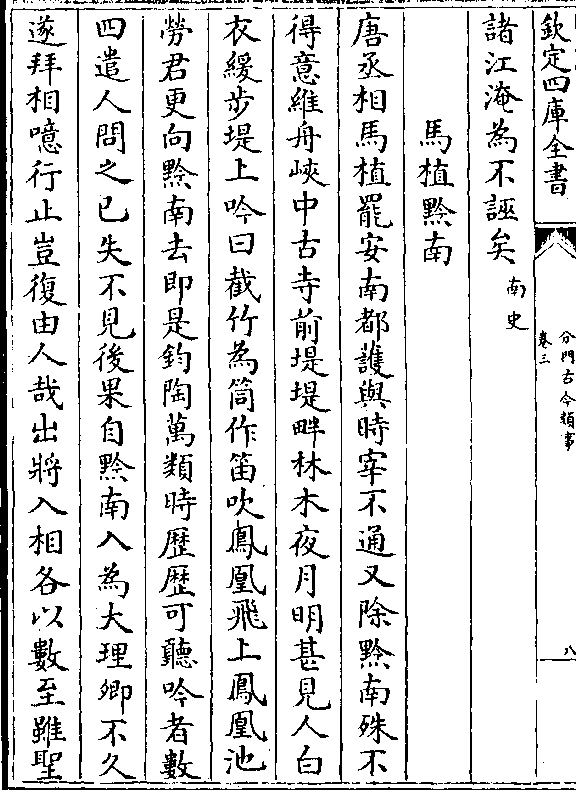 欽定四庫全書
分門古今類事
卷三
八
諸江淹為不誣矣 南史
馬植黔南
唐丞相馬植罷安南都護與時宰不通又除黔南殊不
得意維舟峽中古寺前堤堤畔林木夜月明甚見人白
衣緩步堤上吟曰截竹為筒作笛吹鳳凰飛上鳳凰池
勞君更向黔南去即是鈞陶萬類時歷歷可聽吟者數
四遣人問之已失不見後果自黔南入為大理卿不久
遂拜相噫行止豈復由人哉出將入相各以數至雖聖